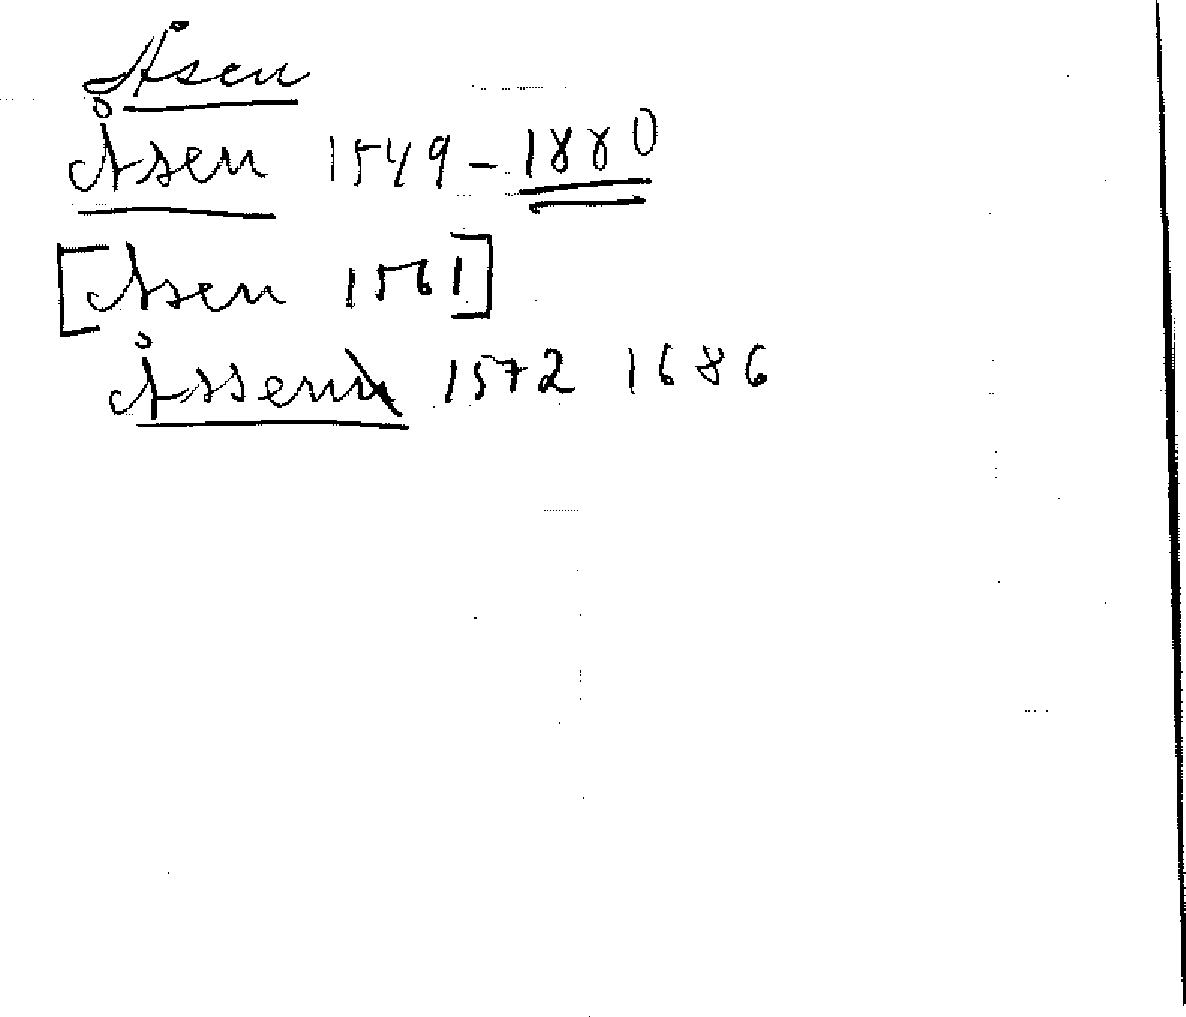 Åsen
Åsen 1549-1880
[Asen 1561]
Åssenn 1572 1686